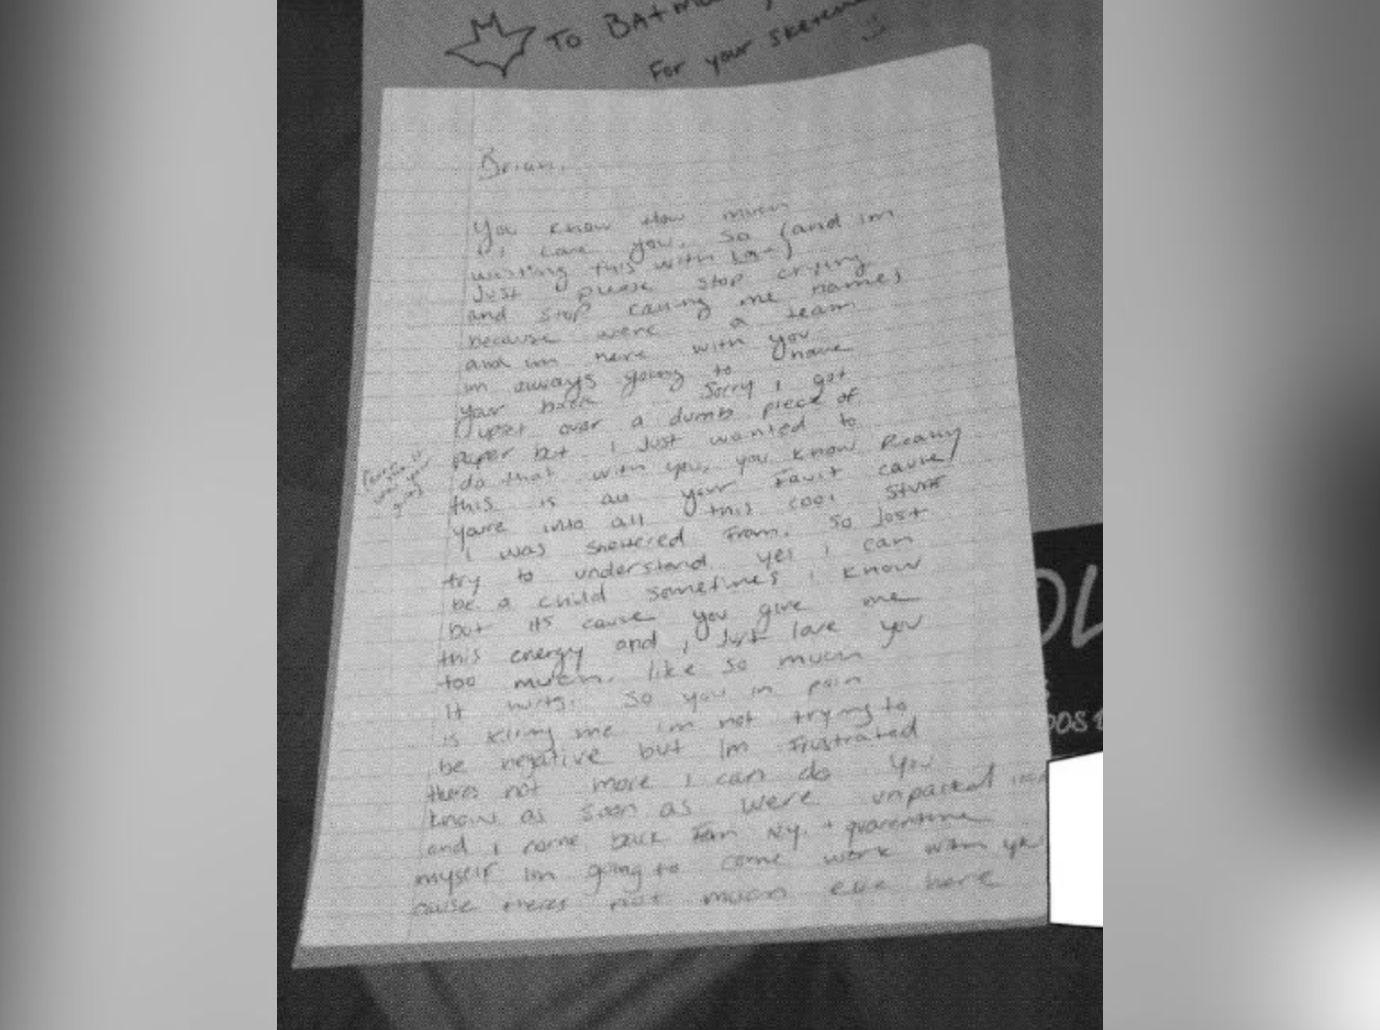 To BAtma
For your sketche
Brian,
You know How much
i love you. So (and im
writing this with love)
Just please stop crying
and stop calling me names
because were a team
and im here with you
im always going to have
your back Sorry i got
upset over a dumb piece of
paper but i Just wanted to
do that with you, you know Really
this is all your fault cause
youre into all this cool stuff
i was sheltered from. So Just
try to understand yes i can
be a child sometimes i know
but its cause you give me
this energy and i Just love you
too much. like so much
it hurts. So you in pain
is killing me im not trying to
be negative but Im Frustrated
theres not more i can do You
know as soon as were unpacked
and i come back from NY. + quarentine
myself Im going to come work with you
cause theres not much else here
OL
POS